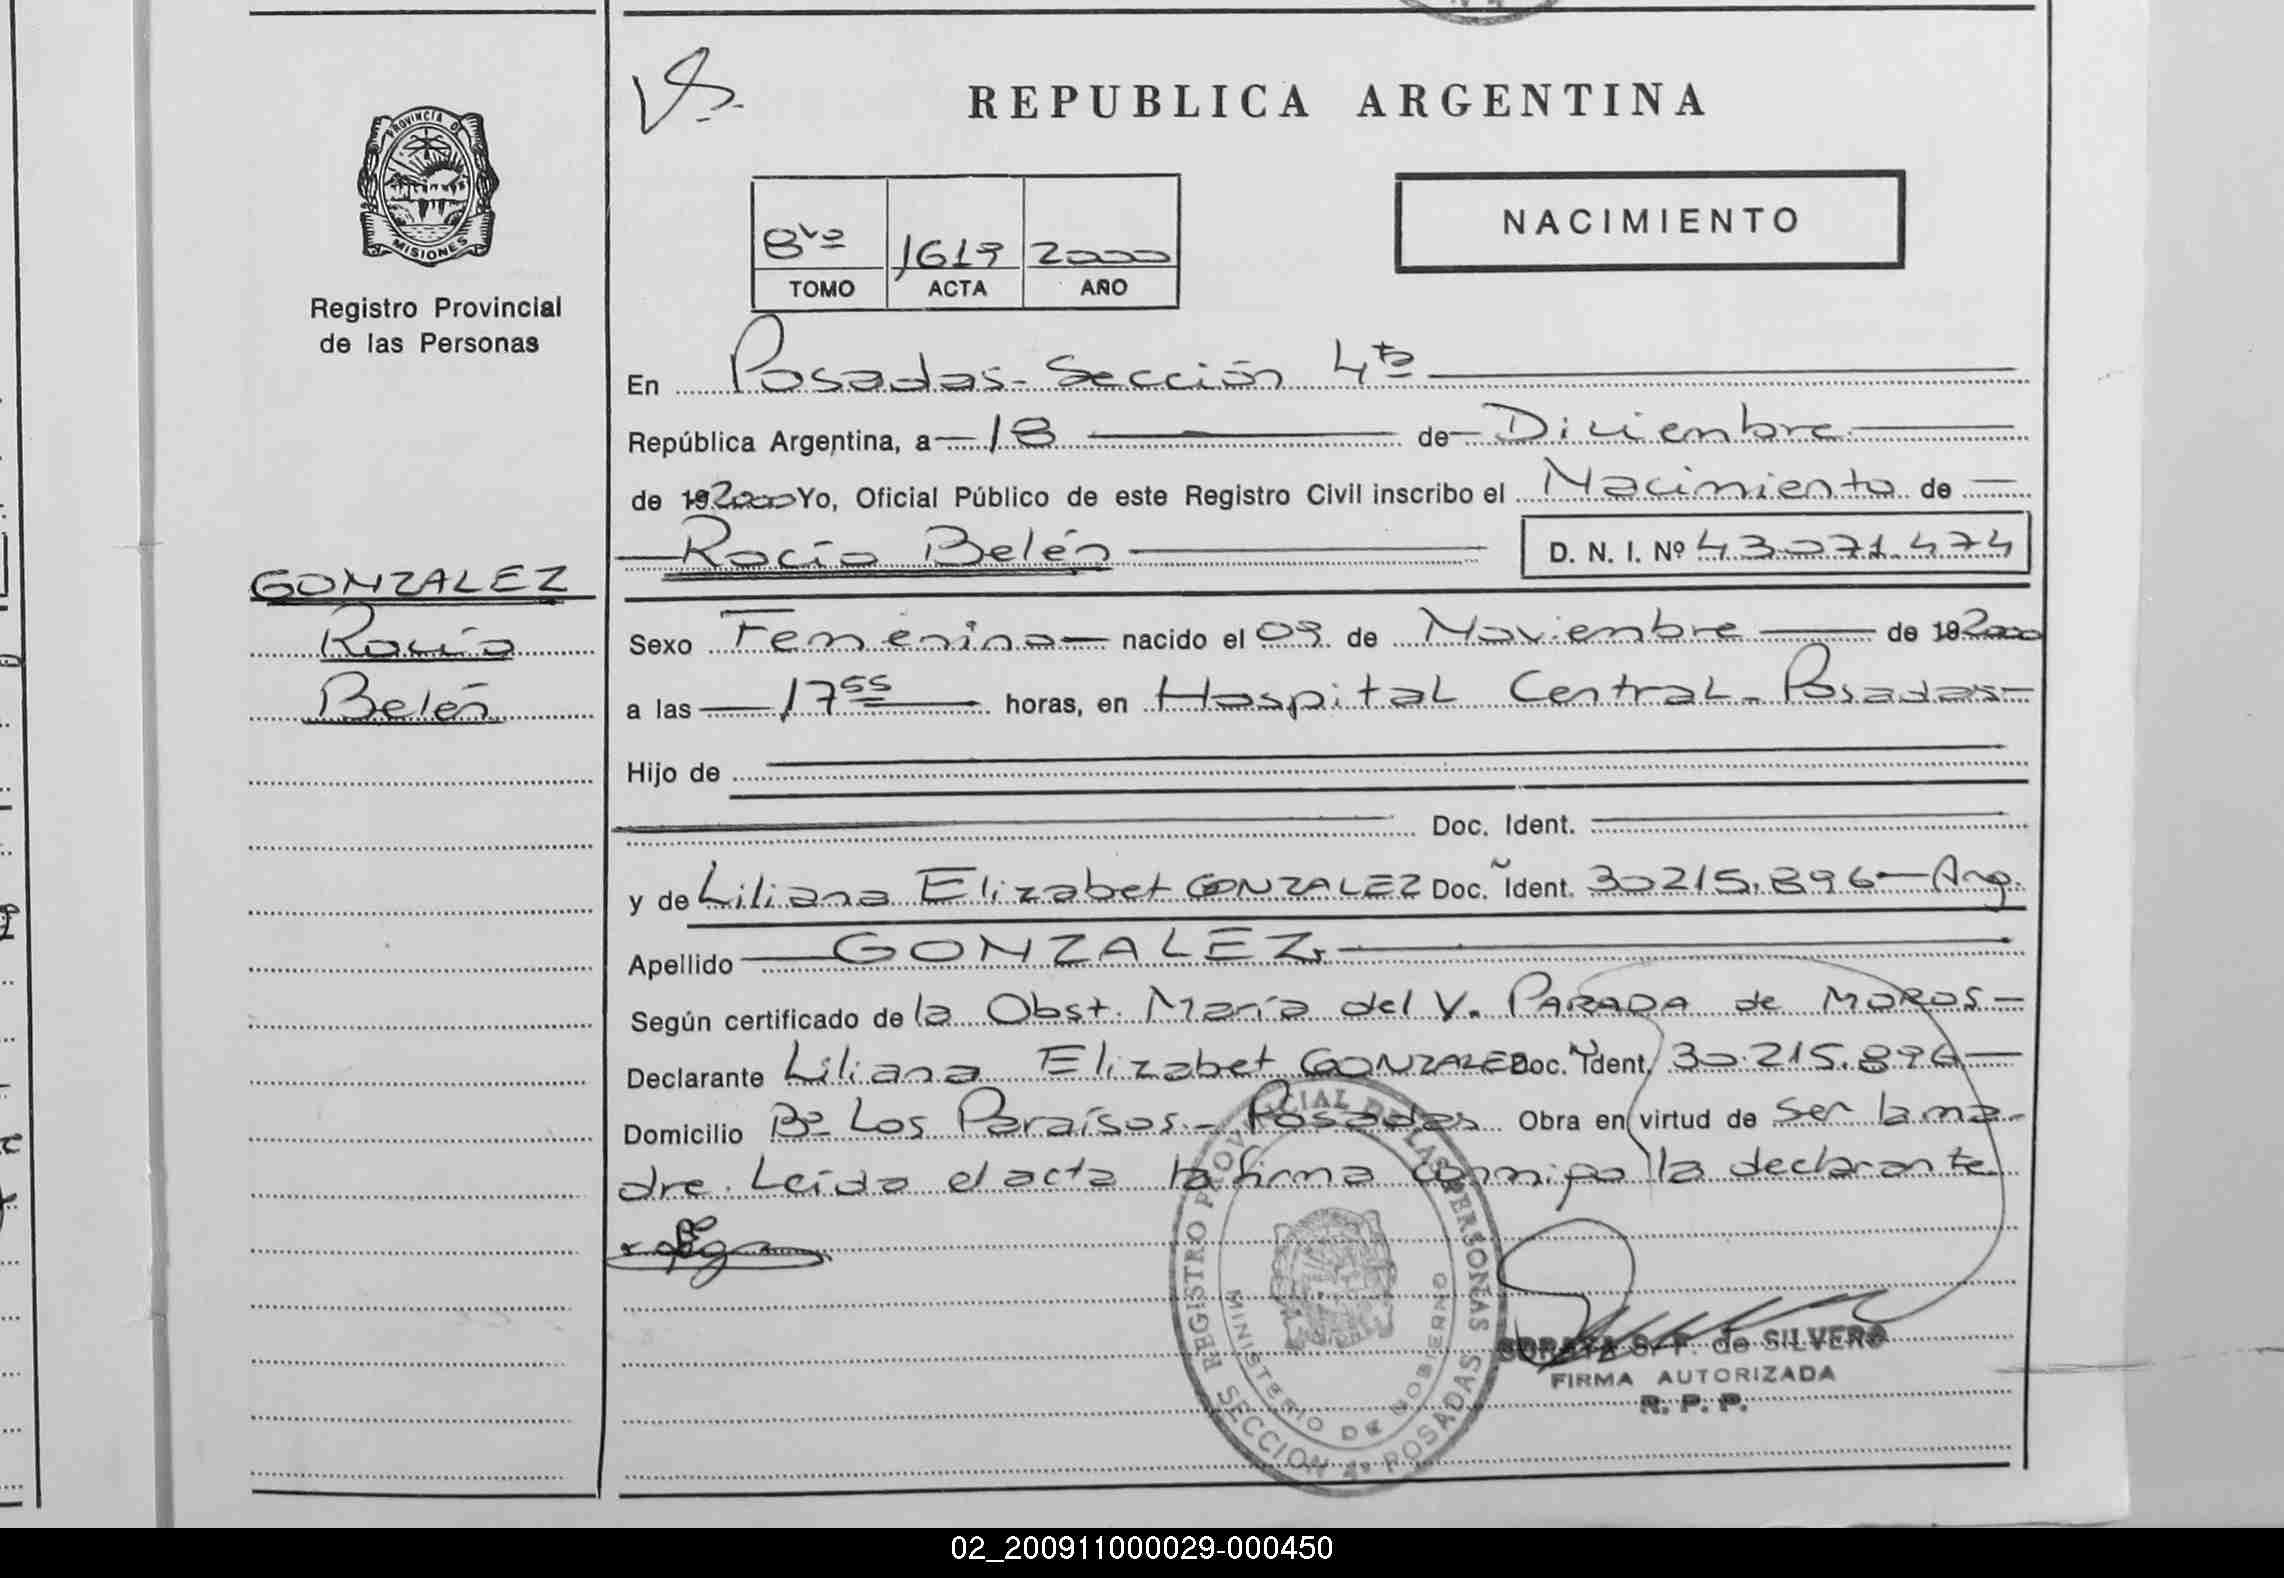 REPUBLICA ARGENTINA
PROVINCIA DE
MISIONES
Registro Provincial
de las Personas
NACIMIENTO
8vo 1619 2000
TOMO ACTA AÑO
En Posadas - Sección 4ta
República Argentina, a 18 de Diciembre
de 192000 Yo, Oficial Público de este Registro Civil inscribo el Nacimiento de
Rocío Belén D. N. I. Nº 43071.474
GONZALEZ
Rocío
Belén
Sexo Femenina nacido el 09 de Noviembre de 192000
a las 17 55 horas, en Hospital Central - Posadas -
Hijo de
Doc. Ident.
y de Liliana Elizabet GONZALEZ Doc. Ident. 30215.896 - Arg.
Apellido GONZALEZ
Según certificado de la Obst. María del V. PARADA de MOROS -
Declarante Liliana Elizabet GONZALEZ Doc. Ident. 30.215.896
Domicilio Bº Los Paraísos - Posadas Obra en virtud de ser la ma-
dre. Leída el acta la firma conmigo la declarante
REGISTRO PROVINCIAL DE LAS PERSONAS
MINISTERIO DE GOBIERNO
SECCION 4ª POSADAS
SORAYA S. F. de SILVERO
FIRMA AUTORIZADA
R. P. P.
02_200911000029-000450